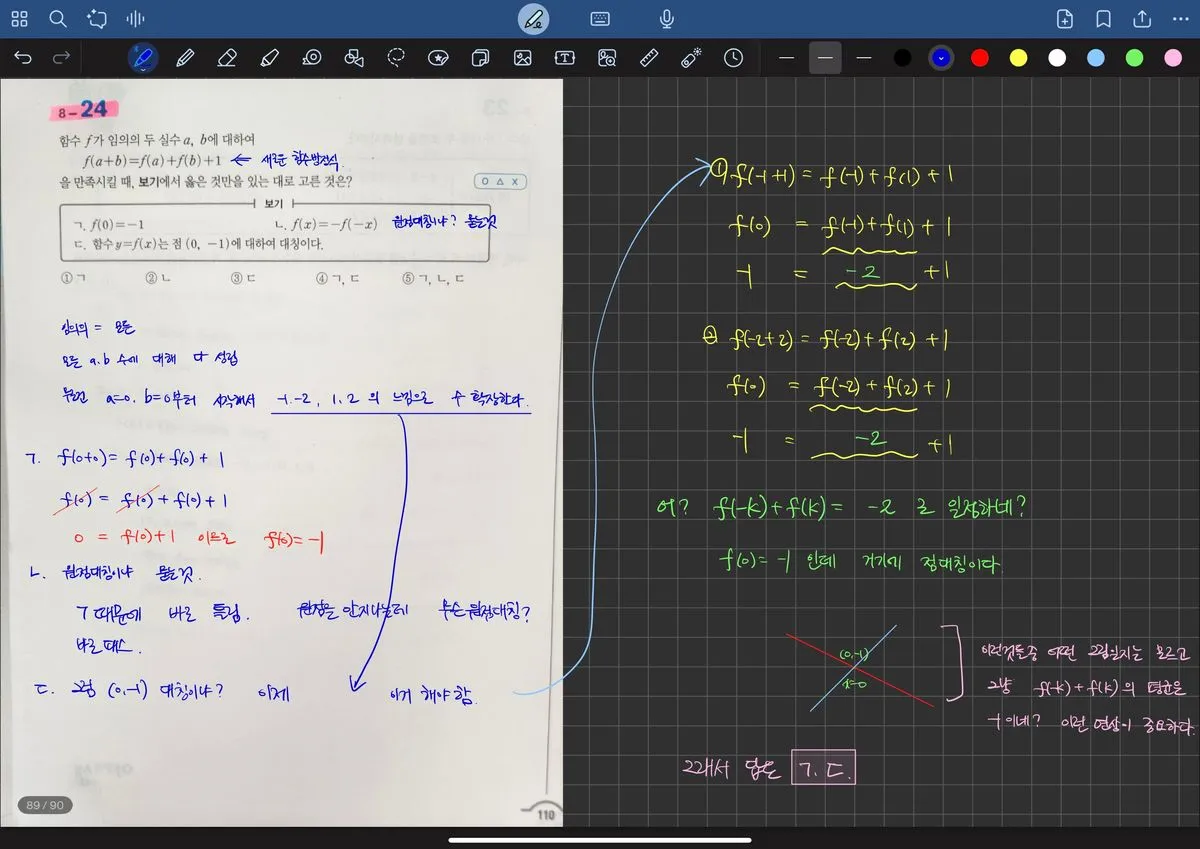 8-24
함수 f가 임의의 두 실수 a, b에 대하여
f(a+b)=f(a)+f(b)+1 ⇐ 새로운 함수방정식.
을 만족시킬 때, 보기에서 옳은 것만을 있는 대로 고른 것은?
O △ X
보기
ㄱ. f(0)=-1 ㄴ. f(x)=-f(-x) 원점대칭이냐? 묻는것
ㄷ. 함수 y=f(x)는 점 (0, -1)에 대하여 대칭이다.
① ㄱ ② ㄴ ③ ㄷ ④ ㄱ, ㄷ ⑤ ㄱ, ㄴ, ㄷ
임의의 = 모든
모든 a.b 수에 대해 다 성립
무조건 a=0. b=0부터 시작해서 -1.-2, 1, 2 의 느낌으로 수 확장한다.
ㄱ. f(0+0)= f(0)+ f(0)+ 1
f(0) = f(0) + f(0) + 1
0 = f(0)+1 이므로 f(0)= -1
ㄴ. 원점대칭이냐 묻는것.
ㄱ 때문에 바로 틀림. 원점을 안지나는데 무슨 원점대칭?
바로 패스.
ㄷ. 그럼 (0,-1) 대칭이냐? 이제 이거 해야 함.
89 / 90
110
① f(-1+1) = f(-1) + f(1) + 1
f(0) = f(-1) + f(1) + 1
-1 = -2 +1
② f(-2+2) = f(-2) + f(2) + 1
f(0) = f(-2) + f(2) + 1
-1 = -2 +1
어? f(-k) + f(k) = -2 로 일정하네?
f(0) = -1 인데 거기에 점대칭이다.
(0,-1)
x=0
이런것들중 어떤 그림일지는 모르고
그냥 f(-k) + f(k) 의 평균은
-1 이네? 이런 연상이 중요하다.
그래서 답은 ㄱ. ㄷ.